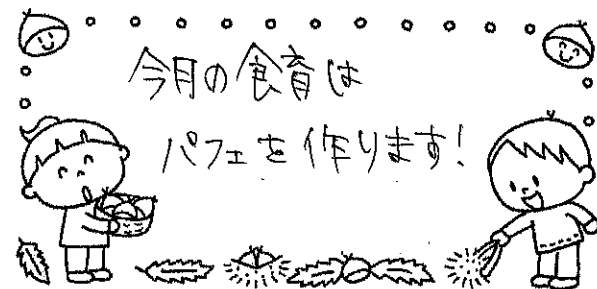 今月の食育は
パフェを作ります!